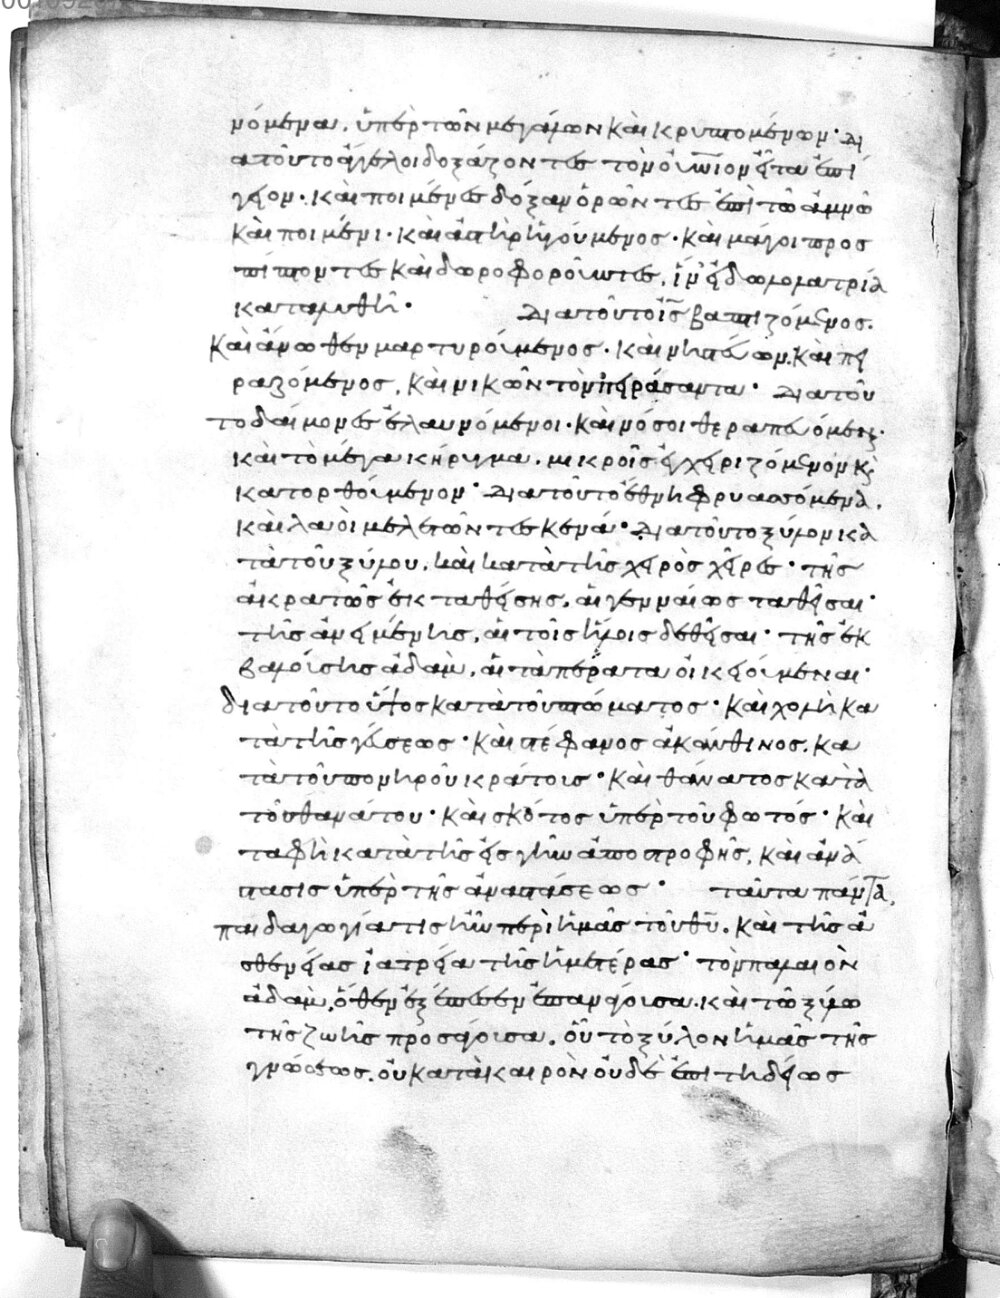 νόμενα, ὑπὲρ τῶν μεγάλων καὶ κρυπτομένων· δι
ατοῦτο ἄγγελοι δοξάζοντες τὸν οὐνιον εἶτα ἐπί
γειον· καὶ ποιμένες δόξαν ὁρῶντες ἐπὶ τῶ ἀμνῶ
καὶ ποιμένι· καὶ ἀστὴρ ἡγούμενος· καὶ μάγοι προσ
πίπτοντες καὶ δωροφοροῦντες, ἵν' εἰδωλολατρία
καταλυθῆ· Διατοῦτο ἰς βαπτιζόμενος.
καὶ ἄνωθεν μαρτυρούμενος· καὶ νηστεύων. καὶ πει
ραζόμενος, καὶ νικῶν τὸν πειράσαντα· Διατοῦ
το δαίμονες ἐλαυνόμενοι· καὶ νόσοι θεραπευόμεναι·
καὶ τὸ μέγα κήρυγμα, μικροῖς ἐγχειριζόμενον κ
κατορθούμενον· Διατοῦτο ἔθνη φρυασσόμενα,
καὶ λαοὶ μελετῶντες κενά· Διατοῦτο ξύλον κα
τὰ τοῦ ξύλου, καὶ κατὰ τῆς χειρὸς χεῖρες· τῆς
ἀκρατῶς ἐκταθείσης, αἱ γενναίως ταθεῖσαι·
τῆς ἀνειμένης, αἱ τοῖς ἥλοις δεθεῖσαι· τῆς ἐκ
βαλούσης ἀδὰμ, αἱ τὰ πέρατα οἰκειούμεναι·
διατοῦτο ὕψος κατὰ τοῦ πτώματος· καὶ χολὴ κα
τὰ τῆς γεύσεως· καὶ στέφανος ἀκάνθινος, κα
τὰ τοῦ πονηροῦ κράτους· καὶ θάνατος κατὰ
τοῦ θανάτου· καὶ σκότος ὑπὲρ τοῦ φωτός· καὶ
ταφὴ κατὰ τῆς εἰς γῆν ἀποστροφῆς, καὶ ἀνά
στασις ὑπὲρ τῆς ἀναστάσεως· ταῦτα πάντα,
παιδαγωγία τις ἦν περὶ ἡμᾶς τοῦ θυ. καὶ τῆς ἀ
σθενείας ἰατρεία τῆς ἡμετέρας· τὸν παλαιὸν
ἀδὰμ, ὅθεν ἐξέπεσεν ἐπανάγουσα. καὶ τῶ ξύλω
τῆς ζωῆς προσάγουσα, οὗ τὸ ξύλον ἡμᾶς τῆς
γνώσεως, οὐ κατὰ καιρὸν οὐδὲ ἐπιτηδείως